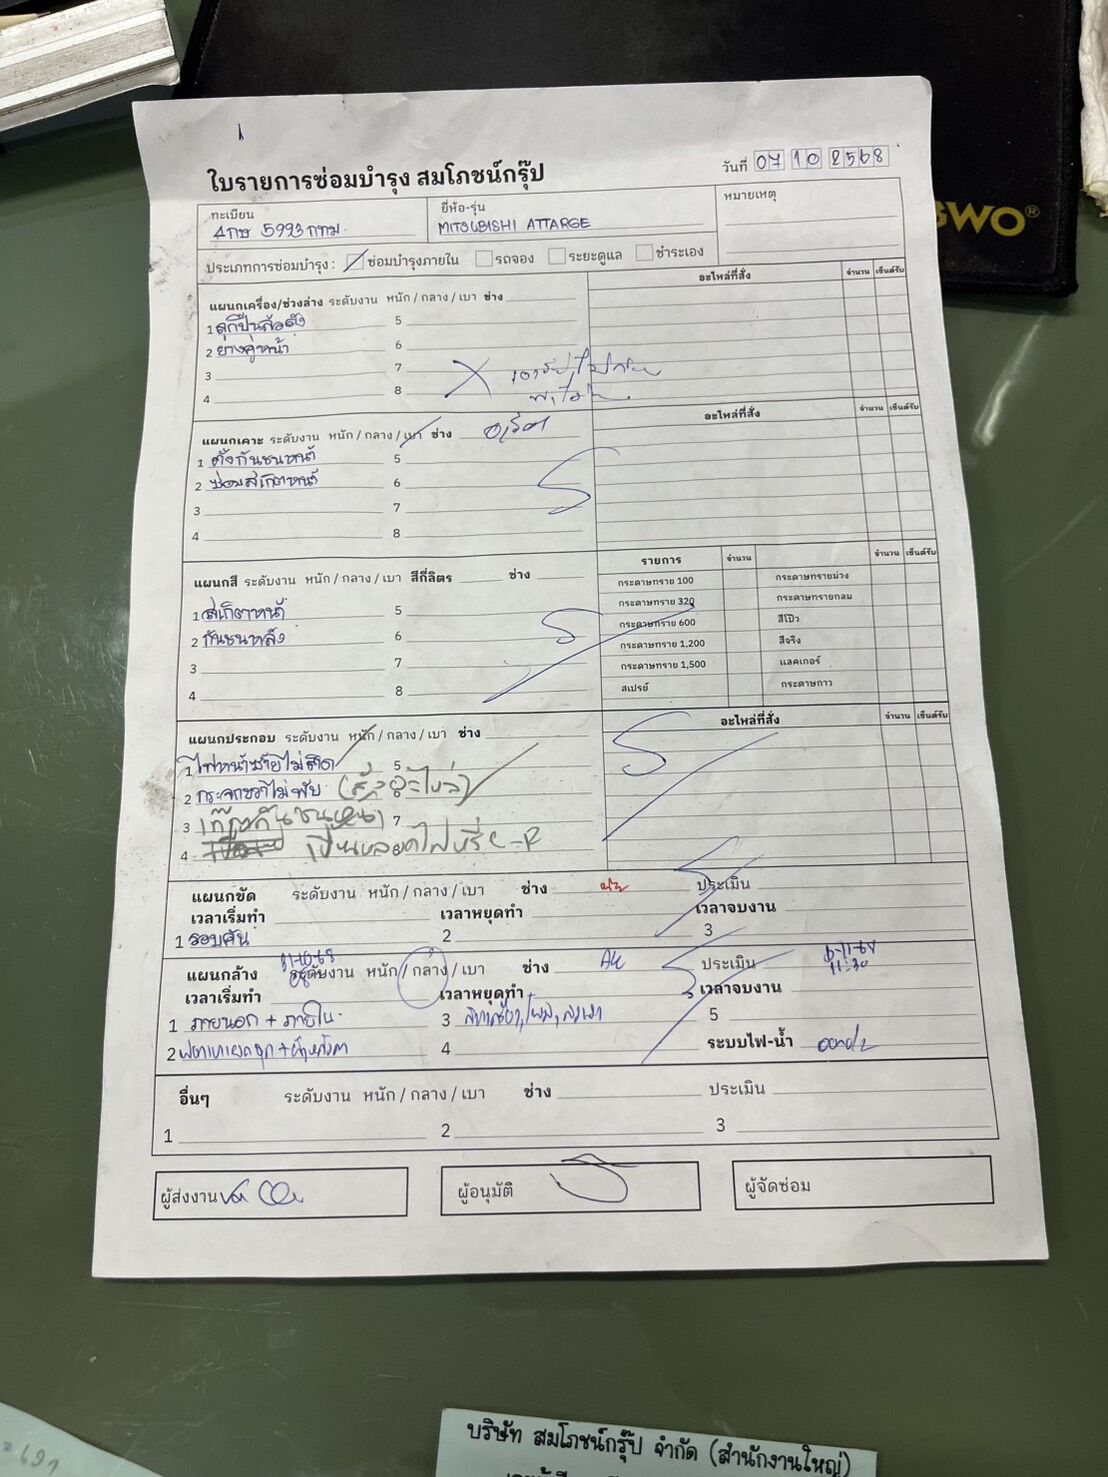 BWO®
ใบรายการซ่อมบำรุง สมโภชน์กรุ๊ป
วันที่ 07 10 2568
ทะเบียน
4กษ 5993 กทม.
ยี่ห้อ-รุ่น
MITSUBISHI ATTARGE
หมายเหตุ
ประเภทการซ่อมบำรุง : ซ่อมบำรุงภายใน รถจอง ระยะดูแล ชำระเอง
แผนกเครื่อง/ช่วงล่าง ระดับงาน หนัก / กลาง / เบา ช่าง
อะไหล่ที่สั่ง จำนวน เซ็นต์รับ
1 ลูกปืนล้อดัง 5
2 ยางคู่หน้า 6
3 7
4 8
แผนกเคาะ ระดับงาน หนัก / กลาง / เบา ช่าง
อะไหล่ที่สั่ง จำนวน เซ็นต์รับ
1 ตั้งกันชนหน้า 5
2 ซ่อมสเกิตหน้า 6
3 7
4 8
แผนกสี ระดับงาน หนัก / กลาง / เบา สีกี่ลิตร ช่าง
รายการ จำนวน จำนวน เซ็นต์รับ
1 สเกิตหน้า 5
2 กันชนหลัง 6
3 7
4 8
กระดาษทราย 100 กระดาษทรายม่วง
กระดาษทราย 320 กระดาษทรายกลม
กระดาษทราย 600 สีโป๊ว
กระดาษทราย 1,200 สีจริง
กระดาษทราย 1,500 แลคเกอร์
สเปรย์ กระดาษกาว
แผนกประกอบ ระดับงาน หนัก / กลาง / เบา ช่าง
อะไหล่ที่สั่ง จำนวน เซ็นต์รับ
1 ไฟหน้าซ้ายไม่ติด 5
2 กระจกขวาไม่พับ (สั่งอะไหล่)
3 กันชนหน้า 7
4 L-R
แผนกขัด ระดับงาน หนัก / กลาง / เบา ช่าง ประเมิน
เวลาเริ่มทำ เวลาหยุดทำ เวลาจบงาน
1 รอบคัน 2 3
แผนกล้าง ระดับงาน หนัก / กลาง / เบา ช่าง ประเมิน
เวลาเริ่มทำ เวลาหยุดทำ เวลาจบงาน 11:30
1 ภายนอก + ภายใน 3 5
2 4 ระบบไฟ-น้ำ
อื่นๆ ระดับงาน หนัก / กลาง / เบา ช่าง ประเมิน
1 2 3
ผู้ส่งงาน
ผู้อนุมัติ
ผู้จัดซ่อม
บริษัท สมโภชน์กรุ๊ป จำกัด (สำนักงานใหญ่)